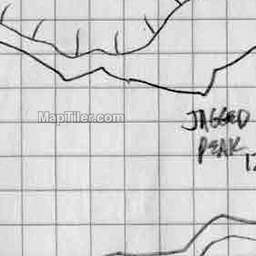 MapTiler.com
JAGGED
PEAK